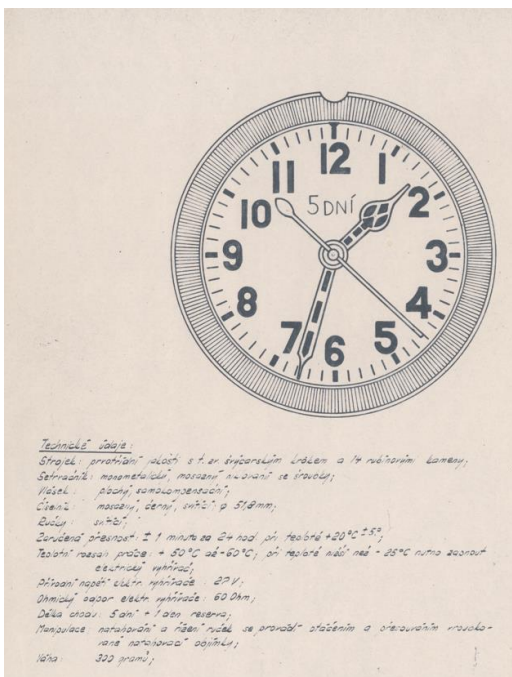 12
11 1
10 5 DNÍ 2
9 3
8 4
7 5
6
Technické údaje:
Strojek: prvotřídní jakosti s t. zv. švýcarským krokem a 17 rubínovými kameny;
Setrvačník: monometalický, mosazný niklovaný se šroubky;
Vlásek: plochý, samokompensační;
Číselník: mosazný, černý, svítící; φ 51,8mm;
Ručky: svítící;
Zaručená přesnost: ± 1 minuta za 24 hod. při teplotě +20°C ±5°;
Teplotní rozsah práce: + 50°C až -60°C; při teplotě nižší než - 25°C nutno zapnout
elektrický vyhřívač;
Přívodní napětí elektr. vyhřívače: 27V;
Ohmický odpor elektr. vyhřívače: 60 Ohm;
Délka chodu: 5 dní + 1 den reserva;
Manipulace: natahování a řízení ruček se provádí otáčením a vroubko-
vané natahovací objímky;
Váha: 300 gramů;